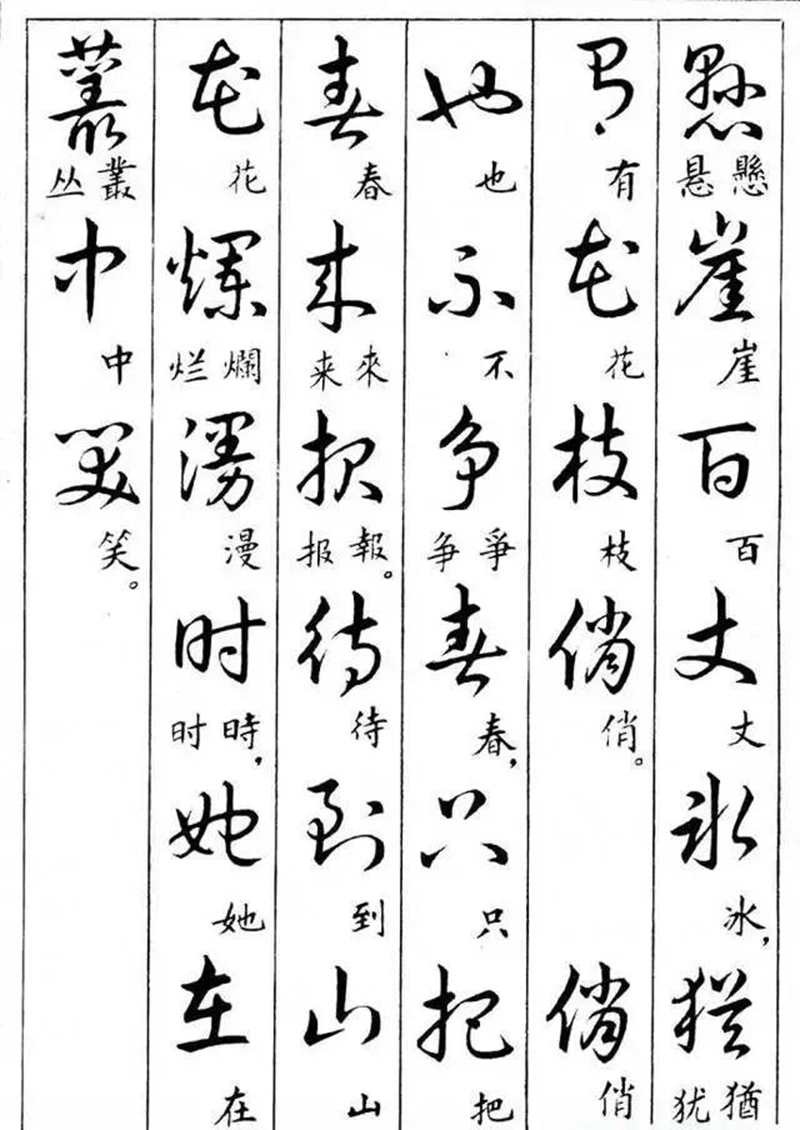 懸 懸悬 崖 崖 百 百 丈 丈 冰 冰， 猶 猶犹
有 有 花 花 枝 枝 俏 俏。 俏 俏
也 也 不 不 争 爭争 春 春， 只 只 把 把
春 春 来 來来 报 報报。 待 待 到 到 山 山
花 花 爛 爛烂 漫 漫 时 時时， 她 她 在 在
叢 叢丛 中 中 笑 笑。